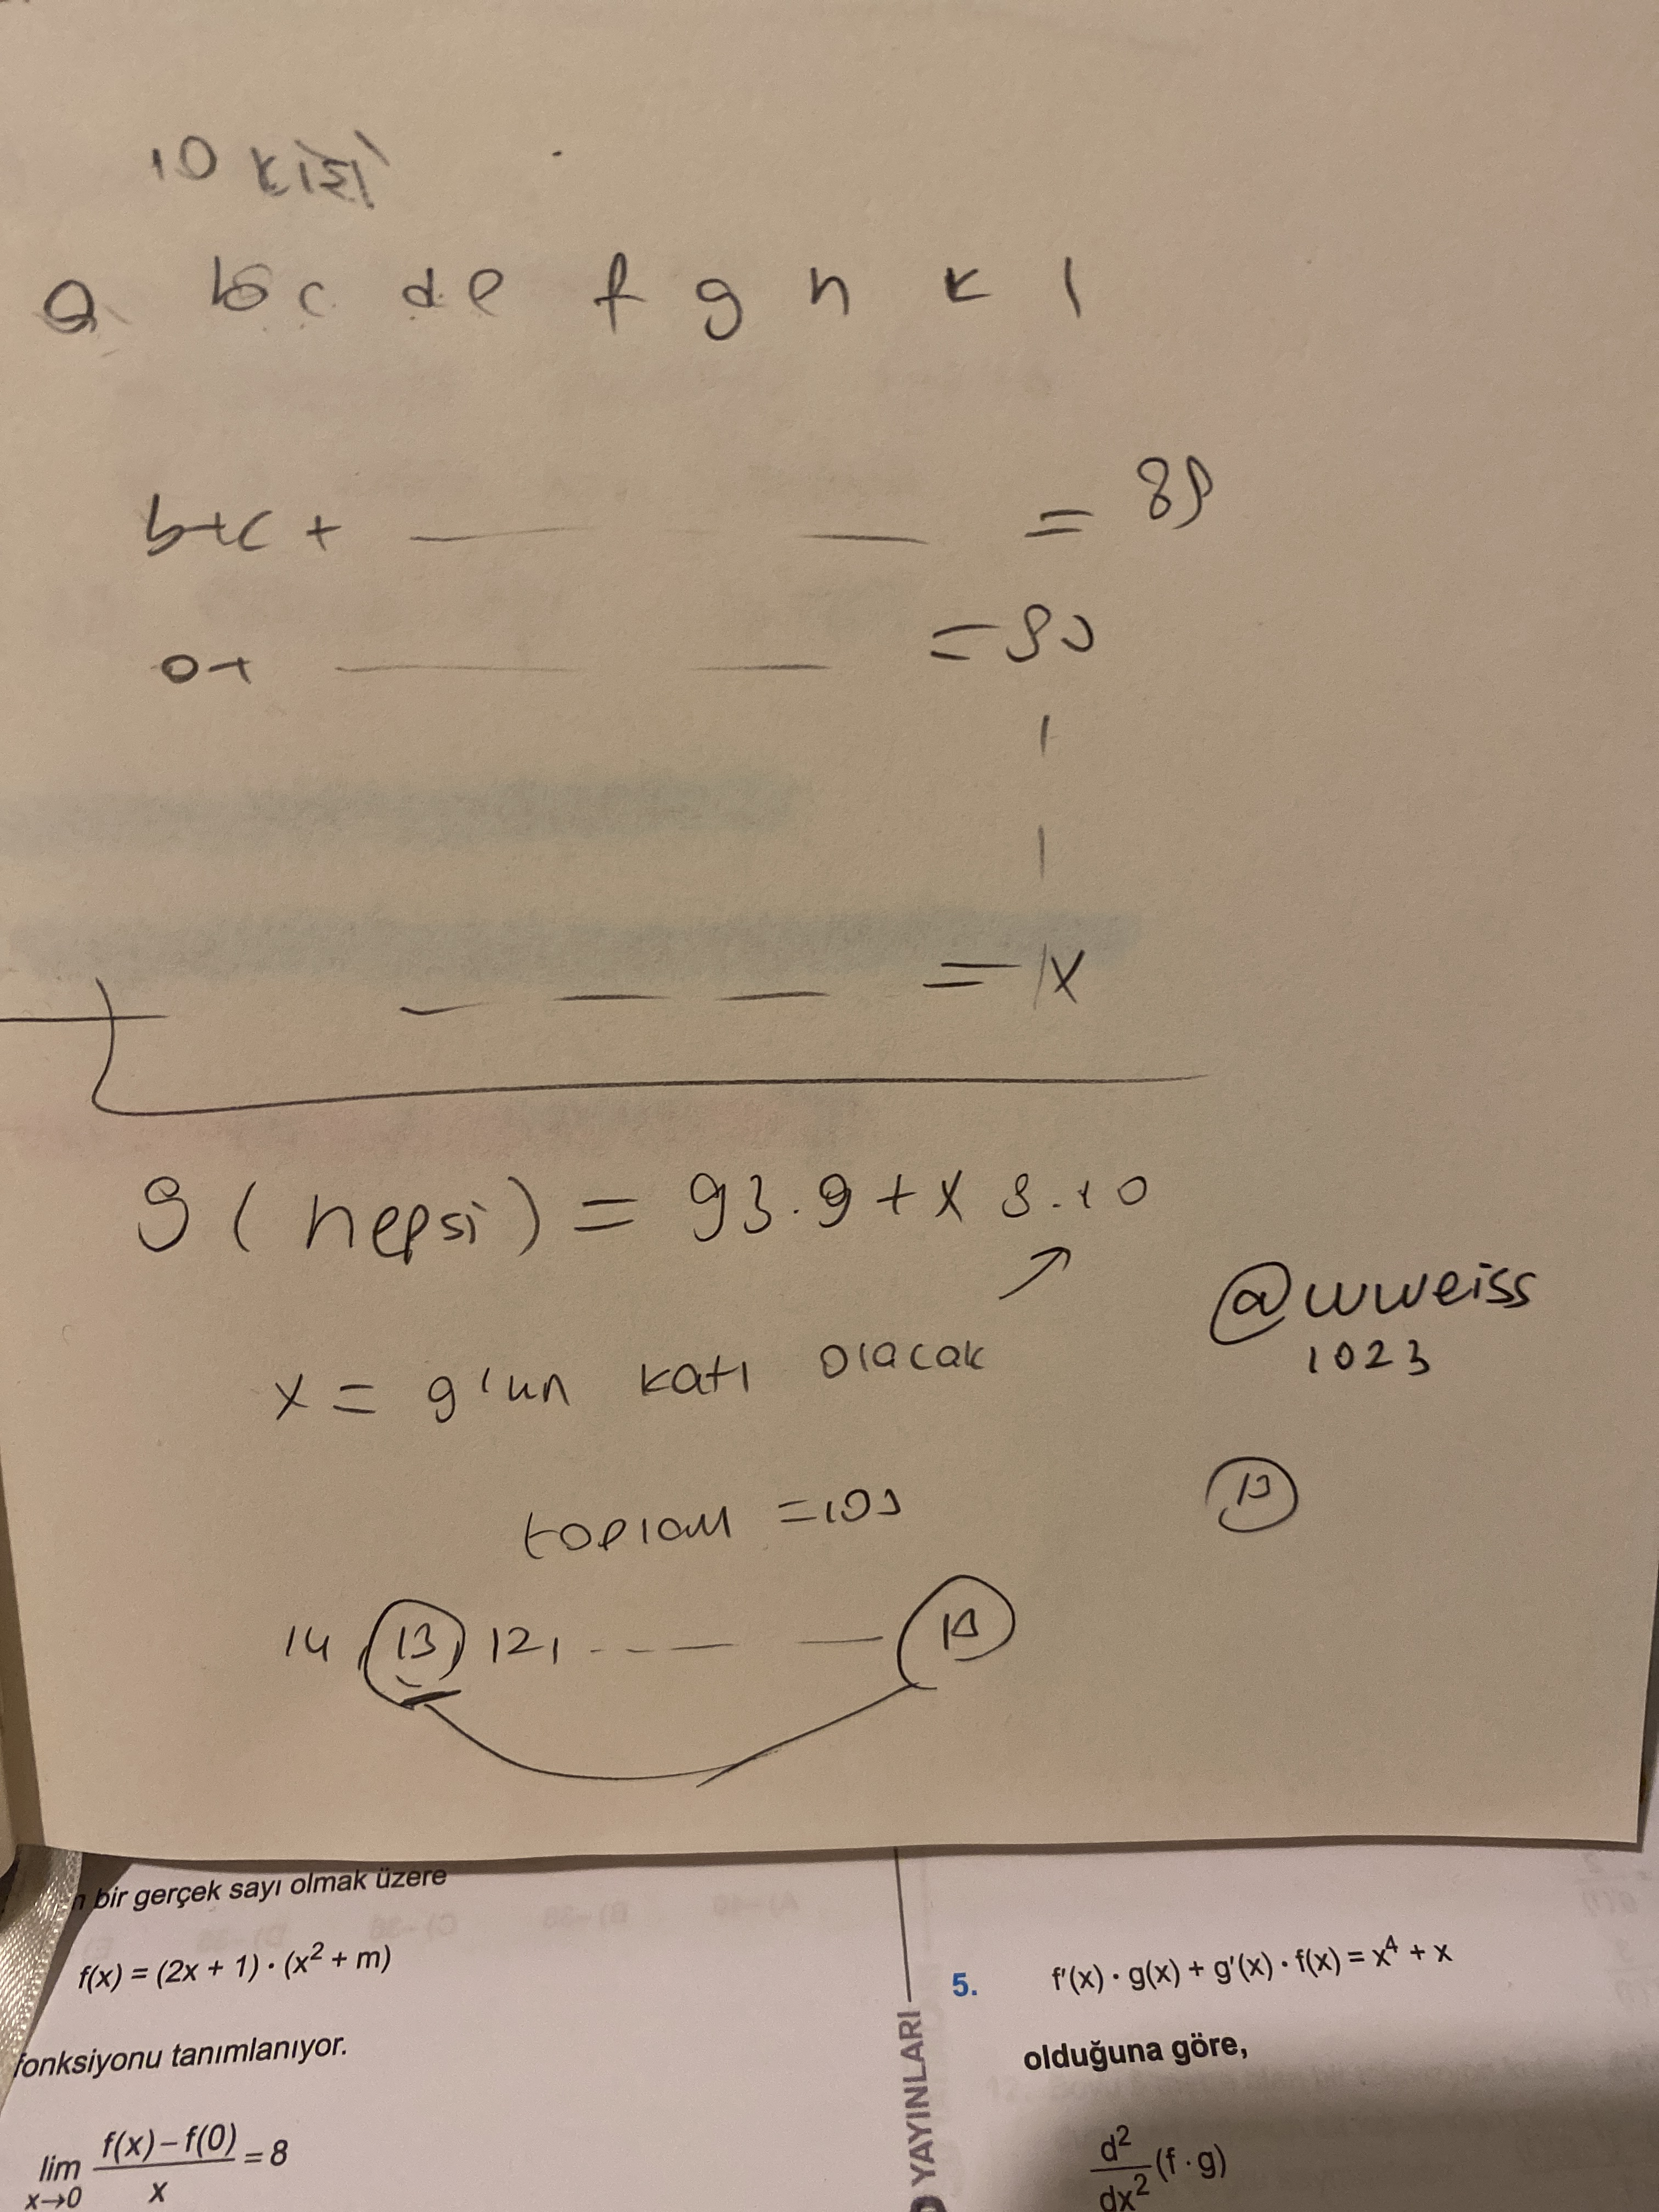 10 kişi
a b c d e f g h k l
b+c + = 89
a+ = 90
= x
9 ( hepsi ) = 93.9 + x 9.10
x = 9'un katı olacak
@wweiss
1023
toplam = 109
14, 13, 12, ---
n bir gerçek sayı olmak üzere
f(x) = (2x + 1) · (x² + m)
fonksiyonu tanımlanıyor.
lim x→0 f(x) – f(0) / x = 8
YAYINLARI
5. f'(x) · g(x) + g'(x) · f(x) = x⁴ + x
olduğuna göre,
d²/dx² (f · g)